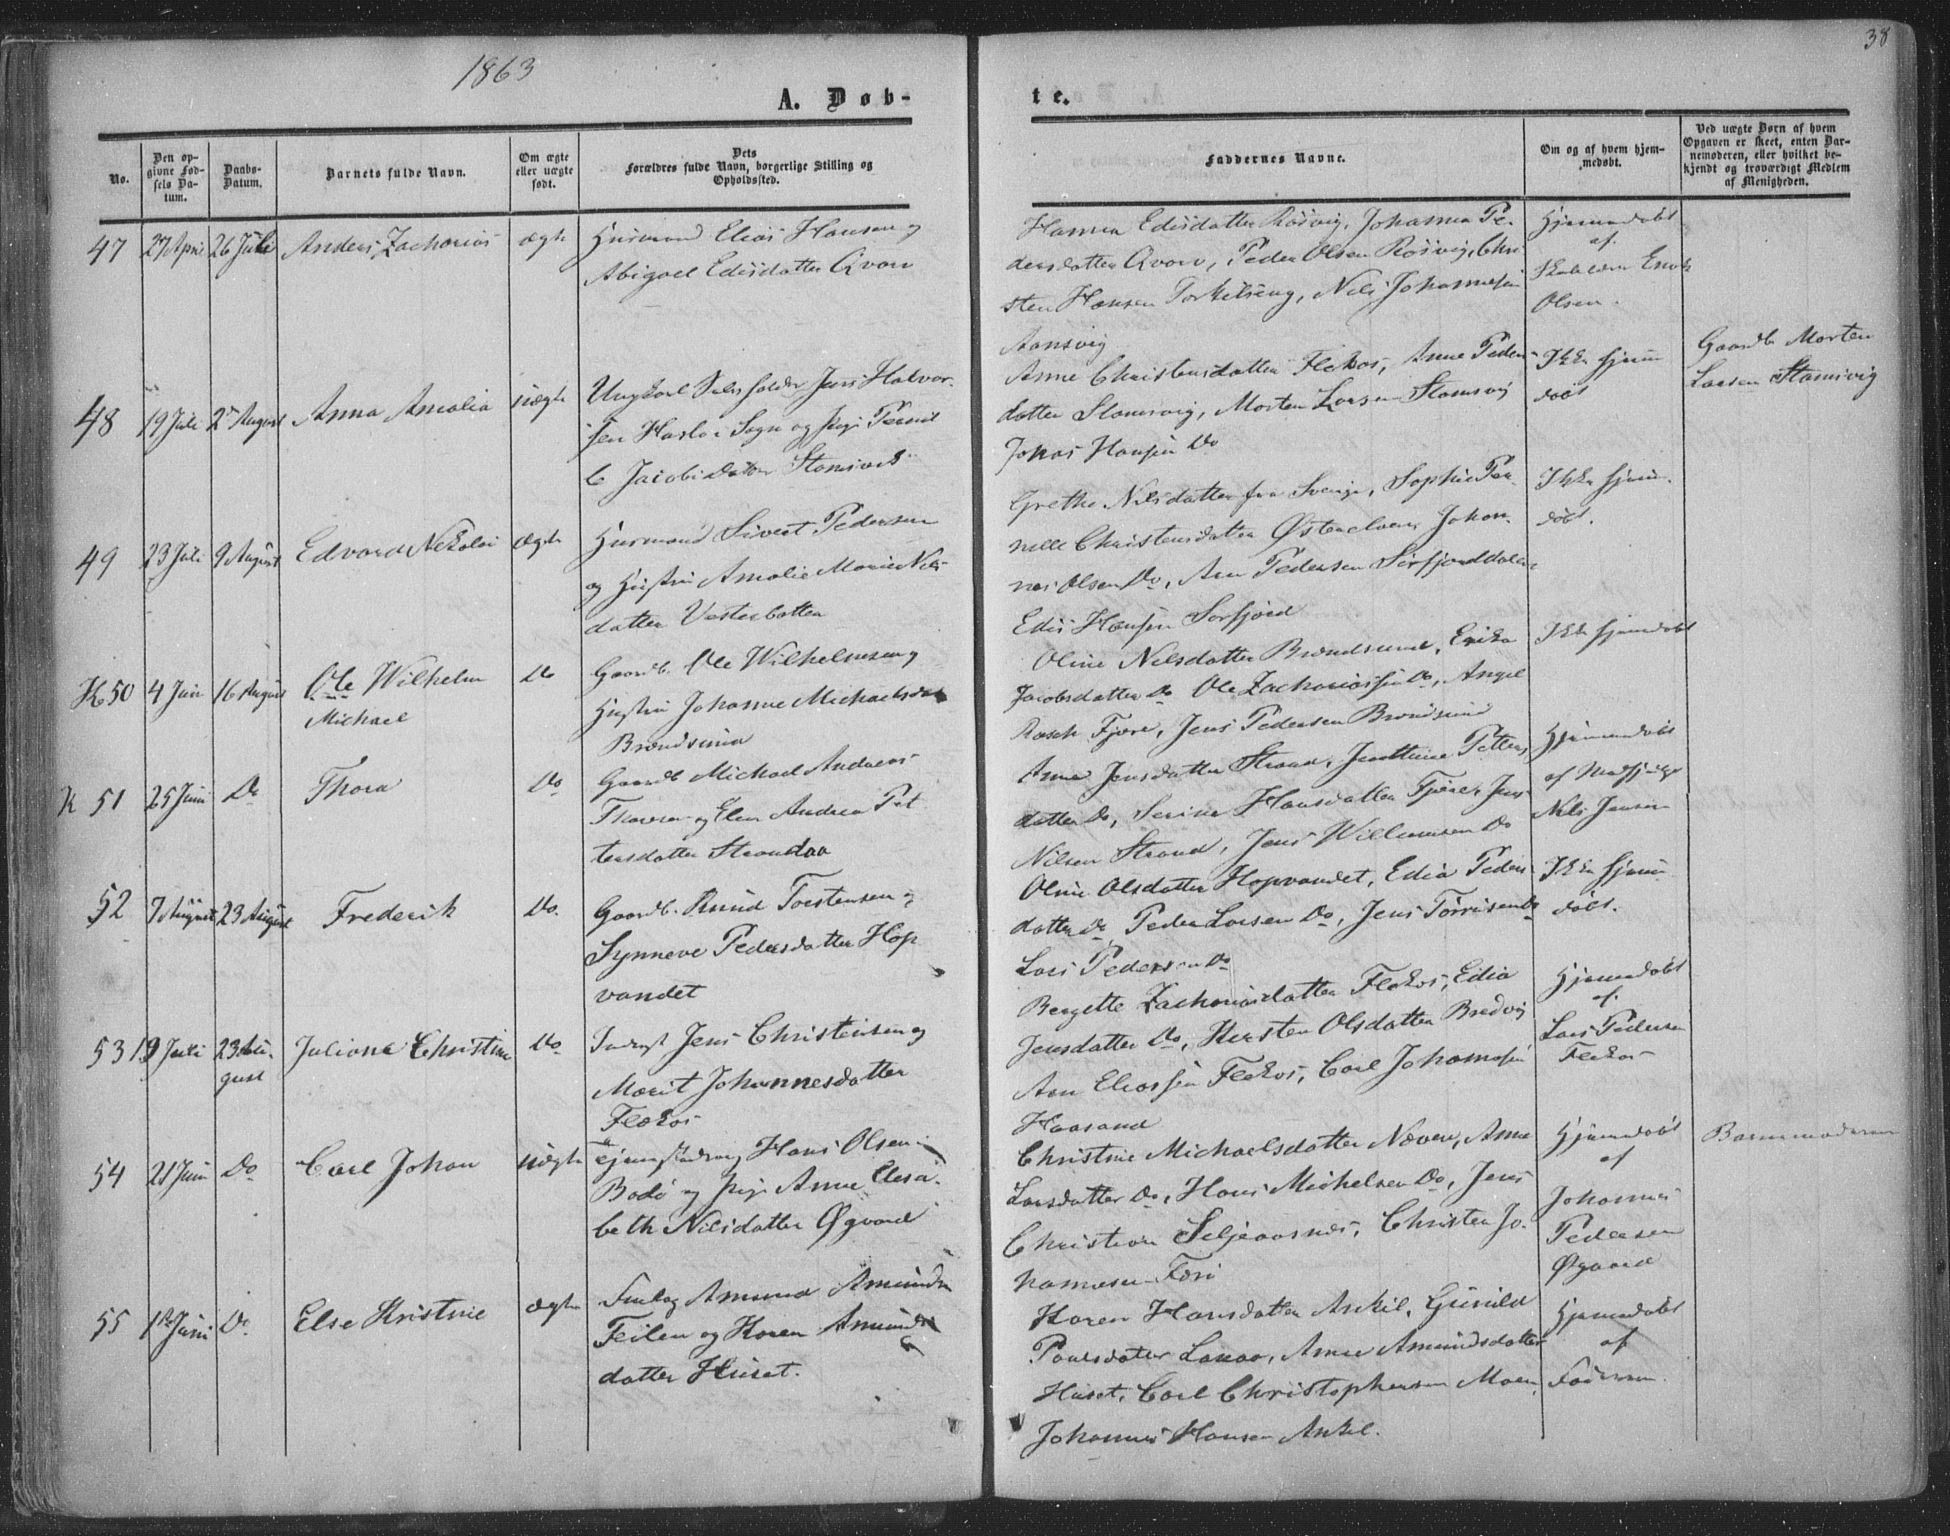 1863
38
A. Døb-
te.
No.
Den opgivne Fødsels Datum.
Daabs-Datum.
Barnets fulde Navn.
Om ægte eller uægte født.
Dets Forældres fulde Navn, borgerlige Stilling og Opholdssted.
Faddernes Navne.
Om og af hvem hjemmedøbt.
Ved uægte Børn af hvem Opgaven er skeet, enten Barnemoderen, eller hvilket bekjendt og troværdigt Medlem af Menigheden.
47 27 April 26 Juli Anders Zacharias ægte
Husmand Elias Hansen og
Abigael Edisdatter Qvarv
Hanna Edisdatter Røsvig, Johanna Pe-
dersdatter Qvarv, Peder Olsen Røsvig, Chri
sten Hansen Torkilseng, Nils Johannesen
Aansvig
Hjemmedøbt
af
Skolelærer Enok
Olsen.
48 19 Juli 2 August Anna Amalia uægte
Ungkarl Jens Halvor-
sen Haslo i Sogn og Pige Pernil
C Jacobsdatter Stamsvik
Anne Christensdatter Flekos, Anne Peders-
datter Stamsvig, Morten Larsen Stamsvig
Johas Hansen Do
Ikke hjem
døbt
Gaardb Morten
Larsen Stamsvig
49 23 Juli 9 August Edvard Nekolai ægte
Husmand Sivert Pedersen
og Hustru Amalie Marie Nils
datter Vesterbotten
Grethe Nilsdatter fra Sverige, Sophie Per-
nelle Christensdatter Østerelven, Johan-
nes Olsen Do, Arn Pedersen Sørfjorddalen
Edis Hansen Sørfjord
Ikke hjem-
døbt.
K 50 4 Juni 16 August Ole Wilhelm Do
Michael
Gaardb. Ole Wilhelmsen og
Hustru Johanne Michaelsdat
Brændsund
Oline Nilsdatter Brændsund, Erika
Jacobsdatter Do Ole Zachariassen Do, Angel
Rasch Fjære, Jens Pedersen Brændsund
Ikke hjemdøbt
K 51 25 Juni Do Thora Do
Gaardb Michael Andreas
Thoresen og Elen Andrea Pet
tersdatter Strandaa
Anne Jensdatter Strand, Jenthine Petters
datter Do, Serine Hansdatter Fjære, Jens
Nilsen Strand, Jens Willumsen Do
Hjemmedøbt
af
Nils Jensen
52 7 August 23 August Frederik Do.
Gaardb. Knud Torstensen og
Synneve Pedersdatter Hop
vandet
Oline Olsdatter Hopvandet, Edia Peders
datter Do Peder Larsen Do, Jens Tørrisen Do
Lars Pedersen Do
Ikke hjem
døbt.
53 19 Juli 23 Au- Juliana Christine Do
gust
Inderst Jens Christensen og
Marit Johannesdatter
Flekos
Bergette Zachariasdatter Flekos, Edia
Jensdatter Do, Kersten Olsdatter Bredvig
Arn Eliassen Flekos, Carl Johannesen
Haasand
Hjemmedøbt
af
Lars Pedersen
Flekos
54 21 Juni Do Carl Johan uægte
Hans Olsen
Bodø og Pige Anne Elesa-
beth Nilsdatter Øgaard
Christine Michaelsdatter Næveren, Anne
Larsdatter Do, Hans Michelsen Do, Jens
Christian Seljeaasnes, Christen Jo-
hannesen Færi
Hjemmedøbt
af
Johannes
Pedersen
Øgaard
Barnemoderen
55 1ste Juni Do Else Kristine ægte
Amund Amunds
Feilen og Karen Amunds
datter Huset.
Karen Hansdatter Ankil, Gunild
Paulsdatter Lakaa, Anne Amundsdatter
Huset, Carl Christophersen Moen
Johannes Hansen Ankil.
Hjemmedøbt
af
Faderen